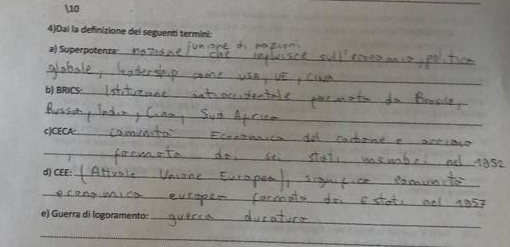 \10
4)Dai la definizione dei seguenti termini:
a) Superpotenza: nazione/unione di nazioni che influisce sull'economia, politica
globale, leadership come USA, UE, Cina
b) BRICS: Istituzione antioccidentale formata da Brasile,
Russia, India, Cina, Sud Africa
c)CECA: comunità Economica del carbone e acciaio
, formata dai sei stati membri nel 1952
d) CEE: (Attuale Unione Europea), significa comunità
economica europea formata dai 6 stati nel 1957
e) Guerra di logoramento: guerra duratura